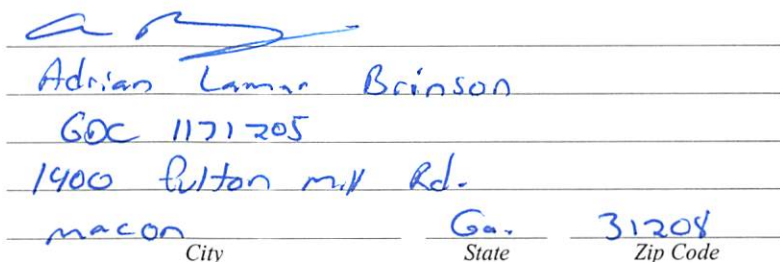 Adrian Lamar Brinson
GDC 1171205
1400 fulton mill Rd.
macon Ga. 31208
City State Zip Code